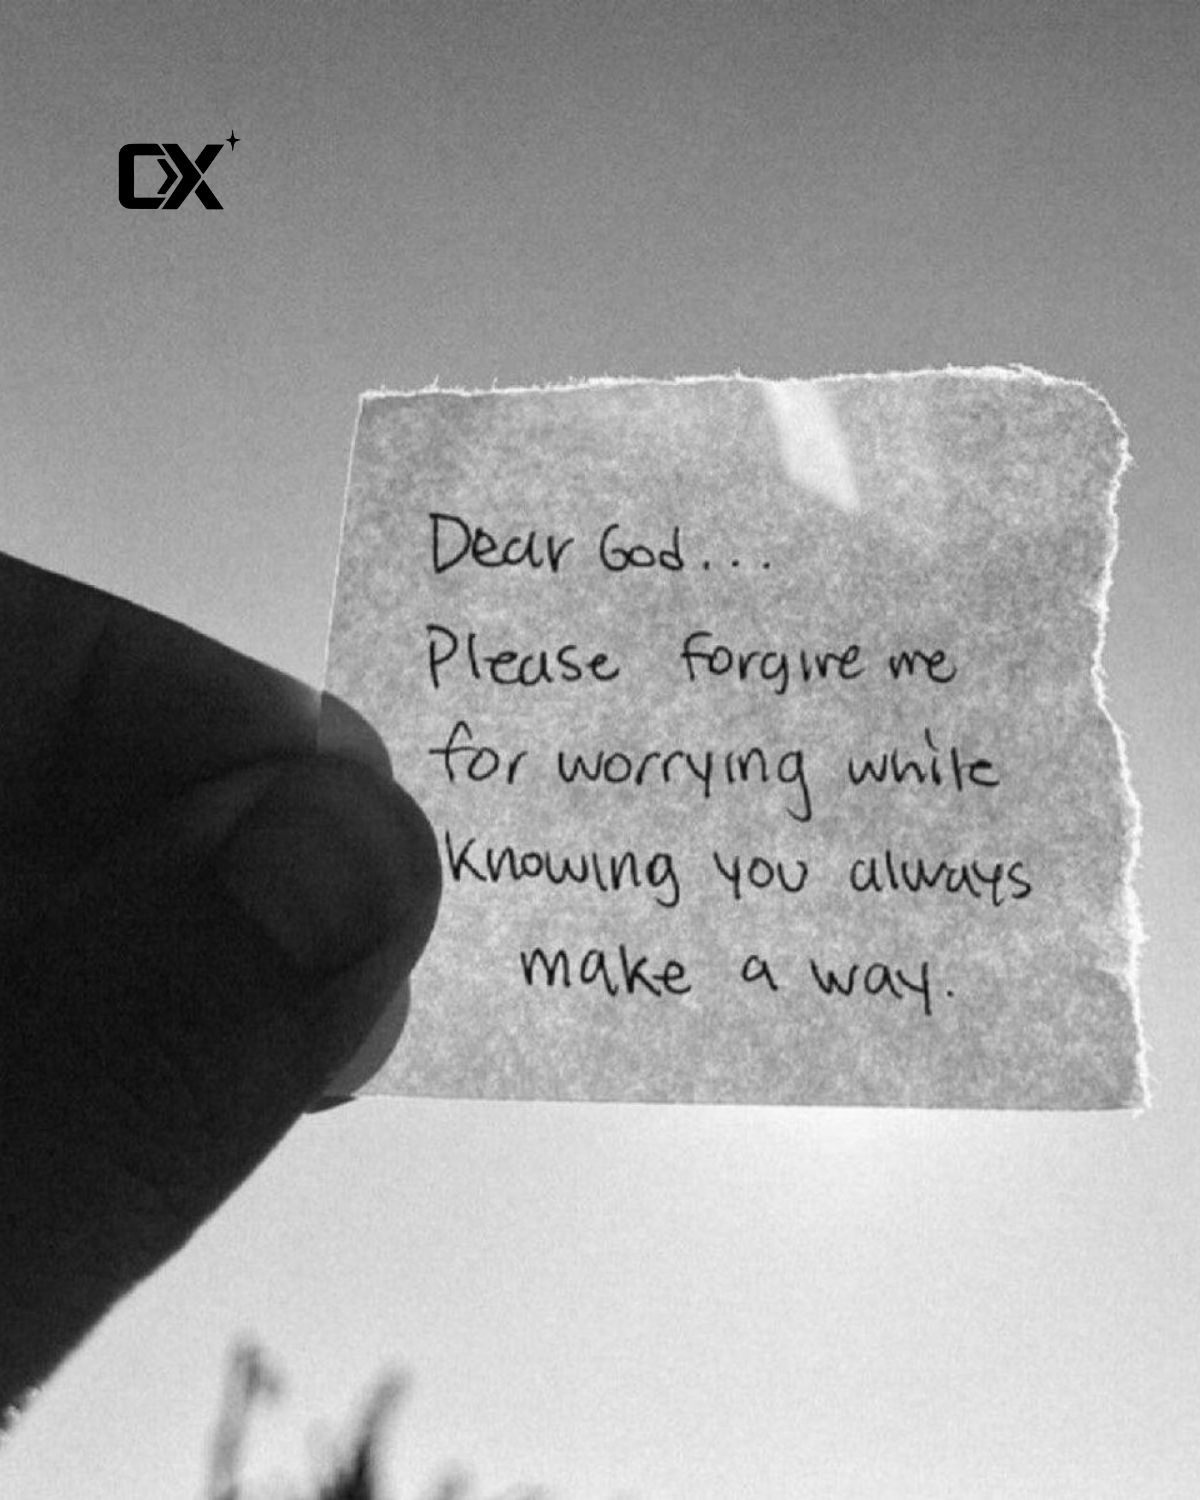 CX
Dear God...
Please forgive me
for worrying while
knowing you always
make a way.